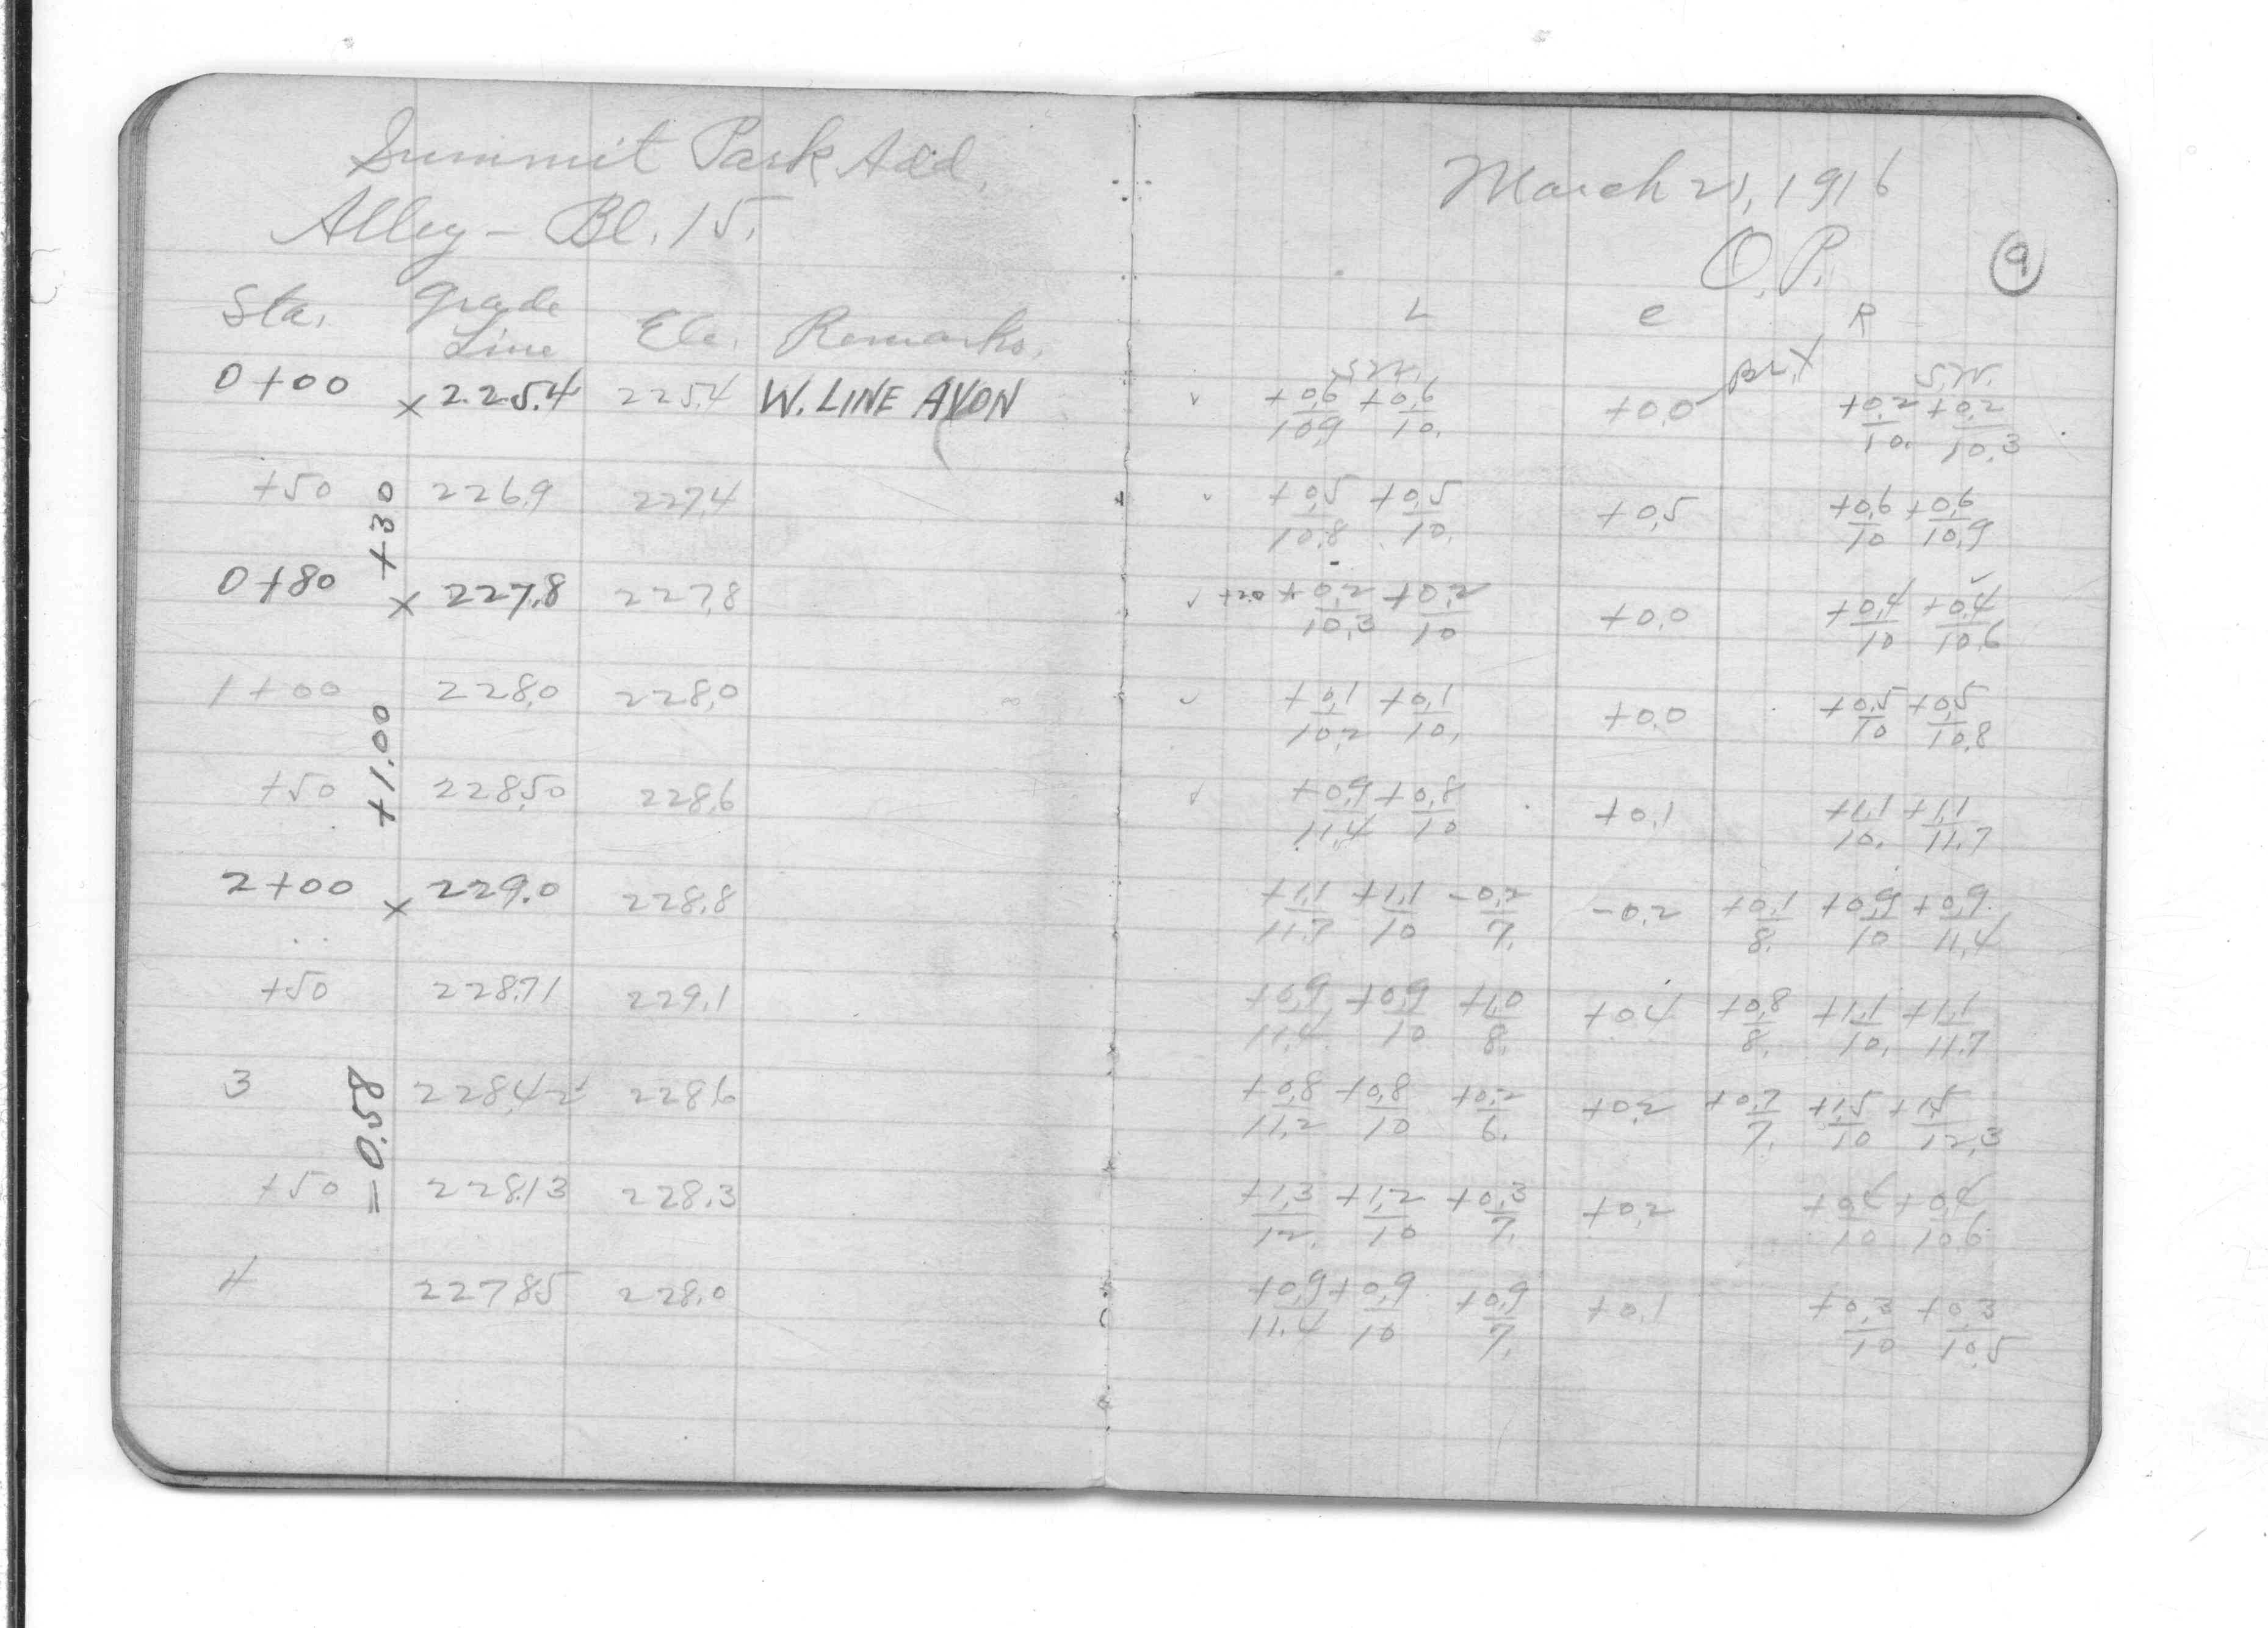 Summit Park Add.
Alley - Bl. 15.
Sta. Grade Line Ele. Remarks.
0+00 x 225.4 225.4 W. LINE AVON
+50 226.9 227.4
+3.0
0+80 x 227.8 227.8
1+00 228.0 228.0
+1.00
+50 228.50 228.6
2+00 x 229.0 228.8
+50 228.71 229.1
3 228.42 228.6
-0.58
+50 228.13 228.3
4 227.85 228.0
March 21, 1916
O.P.
9
L C R
S.W. S.W.
+0.6/10.9 +0.6/10. +0.0 +0.2/10. +0.2/10.3
+0.5/10.8 +0.5/10. +0.5 +0.6/10 +0.6/10.9
+0.2/10.3 +0.2/10 +0.0 +0.4/10 +0.4/10.6
+0.1/10.2 +0.1/10. +0.0 +0.5/10 +0.5/10.8
+0.9/11.4 +0.8/10 +0.1 +1.1/10. +1.1/11.7
+1.1/11.7 +1.1/10 -0.2/7. -0.2 +0.1/8. +0.9/10 +0.9/11.4
+0.9/11.4 +0.9/10 +1.0/8. +0.4 +0.8/8. +1.1/10. +1.1/11.7
+0.8/11.2 +0.8/10 +0.2/6. +0.2 +0.7/7. +1.5/10 +1.5/12.3
+1.3/12. +1.2/10 +0.3/7. +0.2 +0.4/10 +0.4/10.6
+0.9/11.4 +0.9/10 +0.9/7. +0.1 +0.3/10 +0.3/10.5